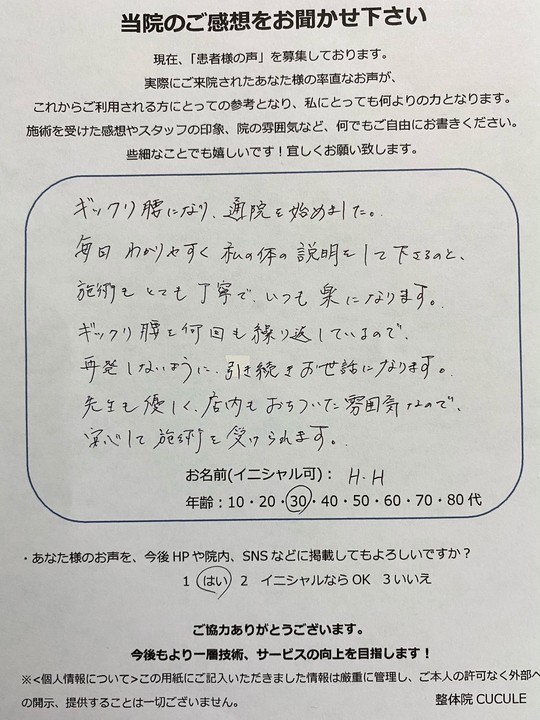 当院のご感想をお聞かせ下さい
現在、「患者様の声」を募集しております。
実際にご来院されたあなた様の率直なお声が、
これからご利用される方にとっての参考となり、私にとっても何よりの力となります。
施術を受けた感想やスタッフの印象、院の雰囲気など、何でもご自由にお書きください。
些細なことでも嬉しいです！宜しくお願い致します。
ギックリ腰になり、通院を始めました。
毎回 わかりやすく 私の体の説明をして下さるのと、
施術もとても丁寧で、いつも楽になります。
ギックリ腰を何回も繰り返しているので、
再発しないように、引き続きお世話になります。
先生も優しく、店内もおちついた雰囲気なので、
安心して施術を受けられます。
お名前(イニシャル可)： H.H
年齢：10・20・30・40・50・60・70・80 代
・あなた様のお声を、今後 HP や院内、SNS などに掲載してもよろしいですか？
1 はい 2 イニシャルなら OK 3 いいえ
ご協力ありがとうございます。
今後もより一層技術、サービスの向上を目指します！
※<個人情報について>この用紙にご記入いただきました情報は厳重に管理し、ご本人の許可なく外部へ
の開示、提供することは一切ございません。
整体院 CUCULE